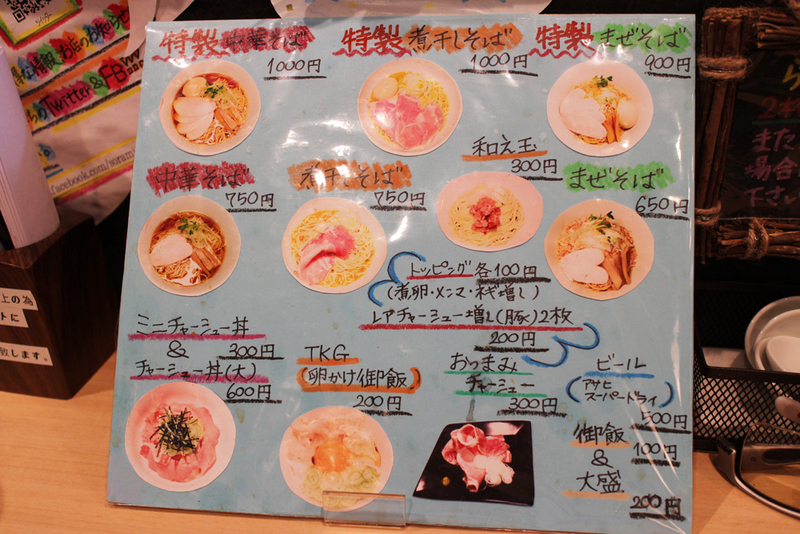 特製 中華そば
1000円
特製 煮干しそば
1000円
特製 まぜそば
900円
和え玉
300円
中華そば
750円
煮干しそば
750円
まぜそば
650円
トッピング各100円
(煮卵・メンマ・ネギ増し)
レアチャーシュー増し(豚)2枚
200円
ミニチャーシュー丼
& 300円
チャーシュー丼(大)
600円
TKG
(卵かけ御飯)
200円
おつまみ
チャーシュー
300円
ビール
(アサヒ
スーパードライ)
500円
御飯 100円
&
大盛
200円
Twitter & FB
facebook.com/soram
上の為
トに
致します。
また
場合
下さい